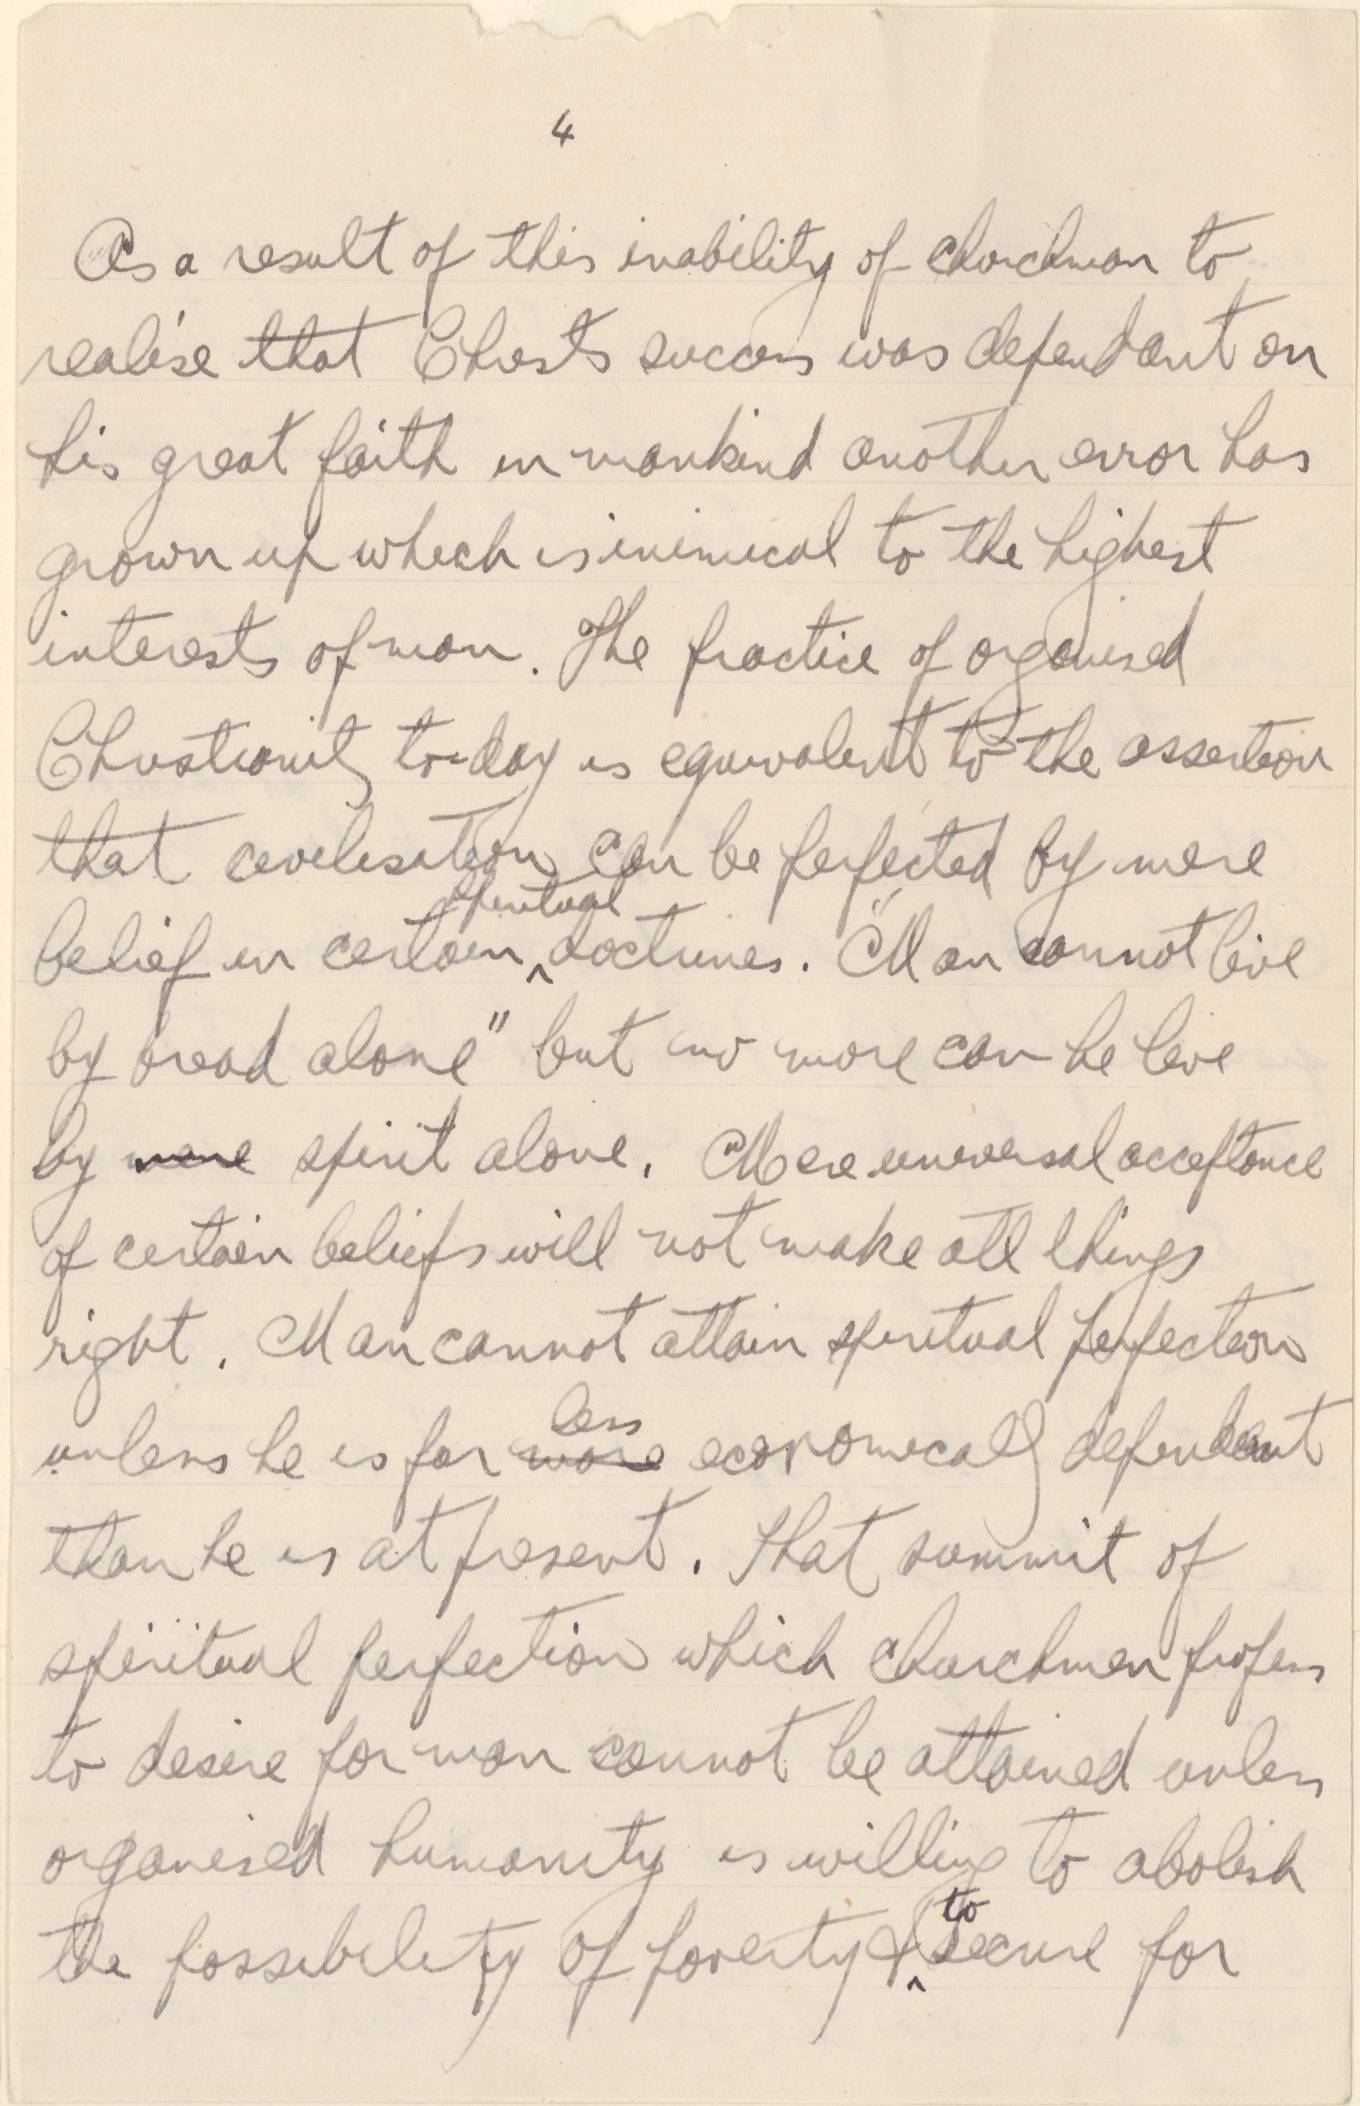 4
As a result of this inability of churchman to
realise that Christs success was dependant on
his great faith in mankind another error has
grown up which is inimical to the highest
interests of man. The practice of organised
Christianity to-day is equivalent to the assertion
that civilisation can be perfected by mere
belief in certain spiritual doctrines. "Man cannot live
by bread alone" but no more can he live
by mere spirit alone. Mere universal acceptance
of certain beliefs will not make all things
right. Man cannot attain spiritual perfection
unless he is far more less economically dependant
than he is at present. That summit of
spiritual perfection which churchmen profess
to desire for man cannot be attained unless
organised humanity is willing to abolish
the possibility of poverty & to secure for